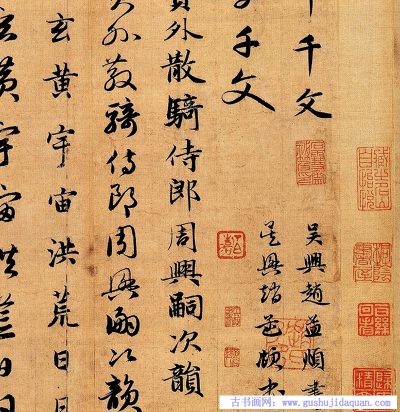 千文
吳興趙孟頫書
千文
吳興趙孟頫書
員外散騎侍郎周興嗣次韻
員外散騎侍郎周興嗣次韻
玄黃宇宙洪荒日月
玄黃宇宙洪荒日月
古书画网：www.gushujidaquan.com